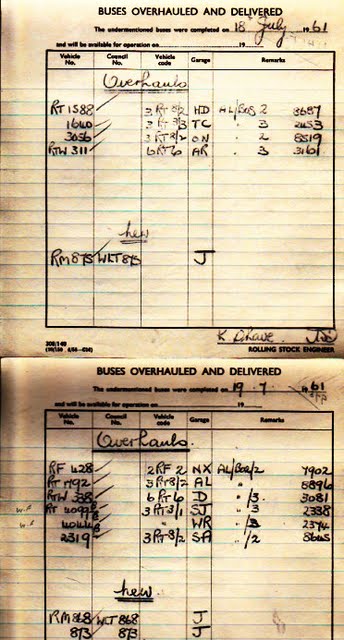 BUSES OVERHAULED AND DELIVERED
The undermentioned buses were completed on 18 July 1961
and will be available for operation on 19
Vehicle No. Council No. Vehicle code Garage Remarks
Overhauls
RT 1588 3 RT 8/2 HD AL/BOS 2 8687
1640 3 RT 3/3 TC " 3 2453
3056 3 RT 3/2 ON " 2 8519
RTW 311 6 RT 6 AR " 3 3161
new
RM 873 WLT 873 J
ROLLING STOCK ENGINEER
BUSES OVERHAULED AND DELIVERED
The undermentioned buses were completed on 19 . 7 1961
and will be available for operation on 19
Vehicle No. Council No. Vehicle code Garage Remarks
Overhauls
RF 428 2 RF 2 NX AL/BOS/2 7902
RT 1792 3 RT 8/2 AL " 8896
RTW 338 6 RT 6 D " /3. 3081
RT 3/1 SJ " 3 2338
" WR " /3 2374
2319 3 RT 3/2 SA " /2 8645
new
RM 868 WLT 868 J
873 873 J